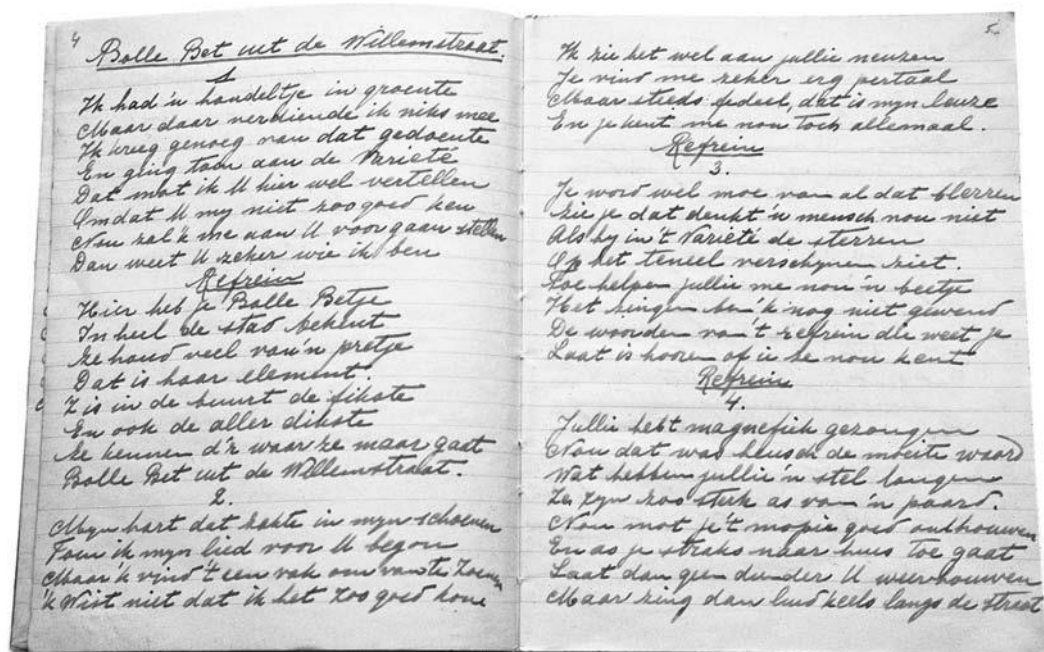 4
Bolle Bet uit de Willemstraat.
1
Ik had 'n handeltje in groente
Maar daar verdiende ik niks mee
Ik kreeg genoeg van dat gedoente
En ging toen aan de Varieté
Dat mot ik U hier wel vertellen
Omdat U my niet zoo goed ken
Nou zal 'k me aan U voor gaan stellen
Dan weet U zeker wie ik ben
Refrein
Hier heb je Bolle Betje
In heel de stad bekent
Ze houd veel van 'n pretje
Dat is haar element.
Z is in de buurt de fikste
En ook de aller dikste
Ze kennen d'r waar ze maar gaat
Bolle Bet uit de Willemstraat.
2.
Myn hart dat zakte in myn schoenen
Toen ik myn lied voor U begon
Maar 'k vind 't een vak om van te zoenen
'k Wist niet dat ik het zoo goed kon
5
Ik zie het wel aan jullie neuzen
Je vind me zeker erg pertaal
Maar steeds fedeel, dat is myn leuze
En je kent me nou toch allemaal.
Refrein
3.
Je word wel moe van al dat blerren
Zie je dat denkt 'n mensch nou niet
Als hy in 't Varieté de sterren
Op het toneel verschynen ziet.
Toe helpen jullie me nou 'n beetje
Het zingen ben 'k nog niet gewend
De woorden van 't refrein die weet je
Laat is hooren of u ze nou kent
Refrein
4.
Jullie hebt magnefiek gezongen
Nou dat was heusch de moeite waard
Wat hebben jullie 'n stel longen
Ze zyn zoo sterk as van 'n paard.
Nou mot je 't mopie goed onthouwen
En as je straks naar huis toe gaat
Laat dan geen dender U weerhouwen
Maar zing dan luid keels langs de straat